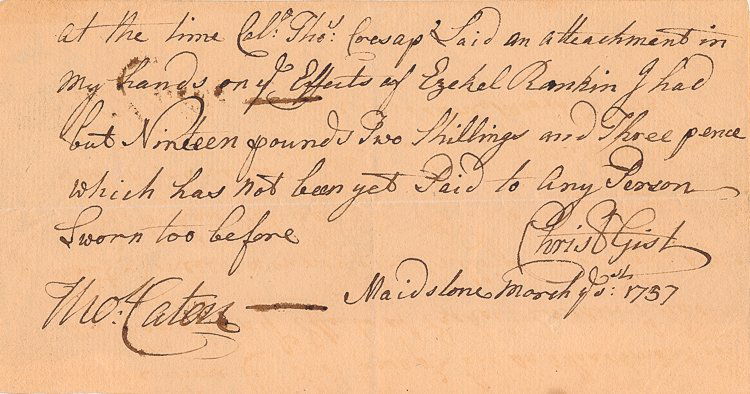 at the time Col.º Tho.s Cresap Laid an attachment in
my hands on ye Effects of Ezekel Rankin I had
but Nineteen pounds Two Shillings and Three pence
which has not been yet Paid to Any Person
Sworn too before
Chris Gist
Maidstone March ye 1757
Tho.s Caton